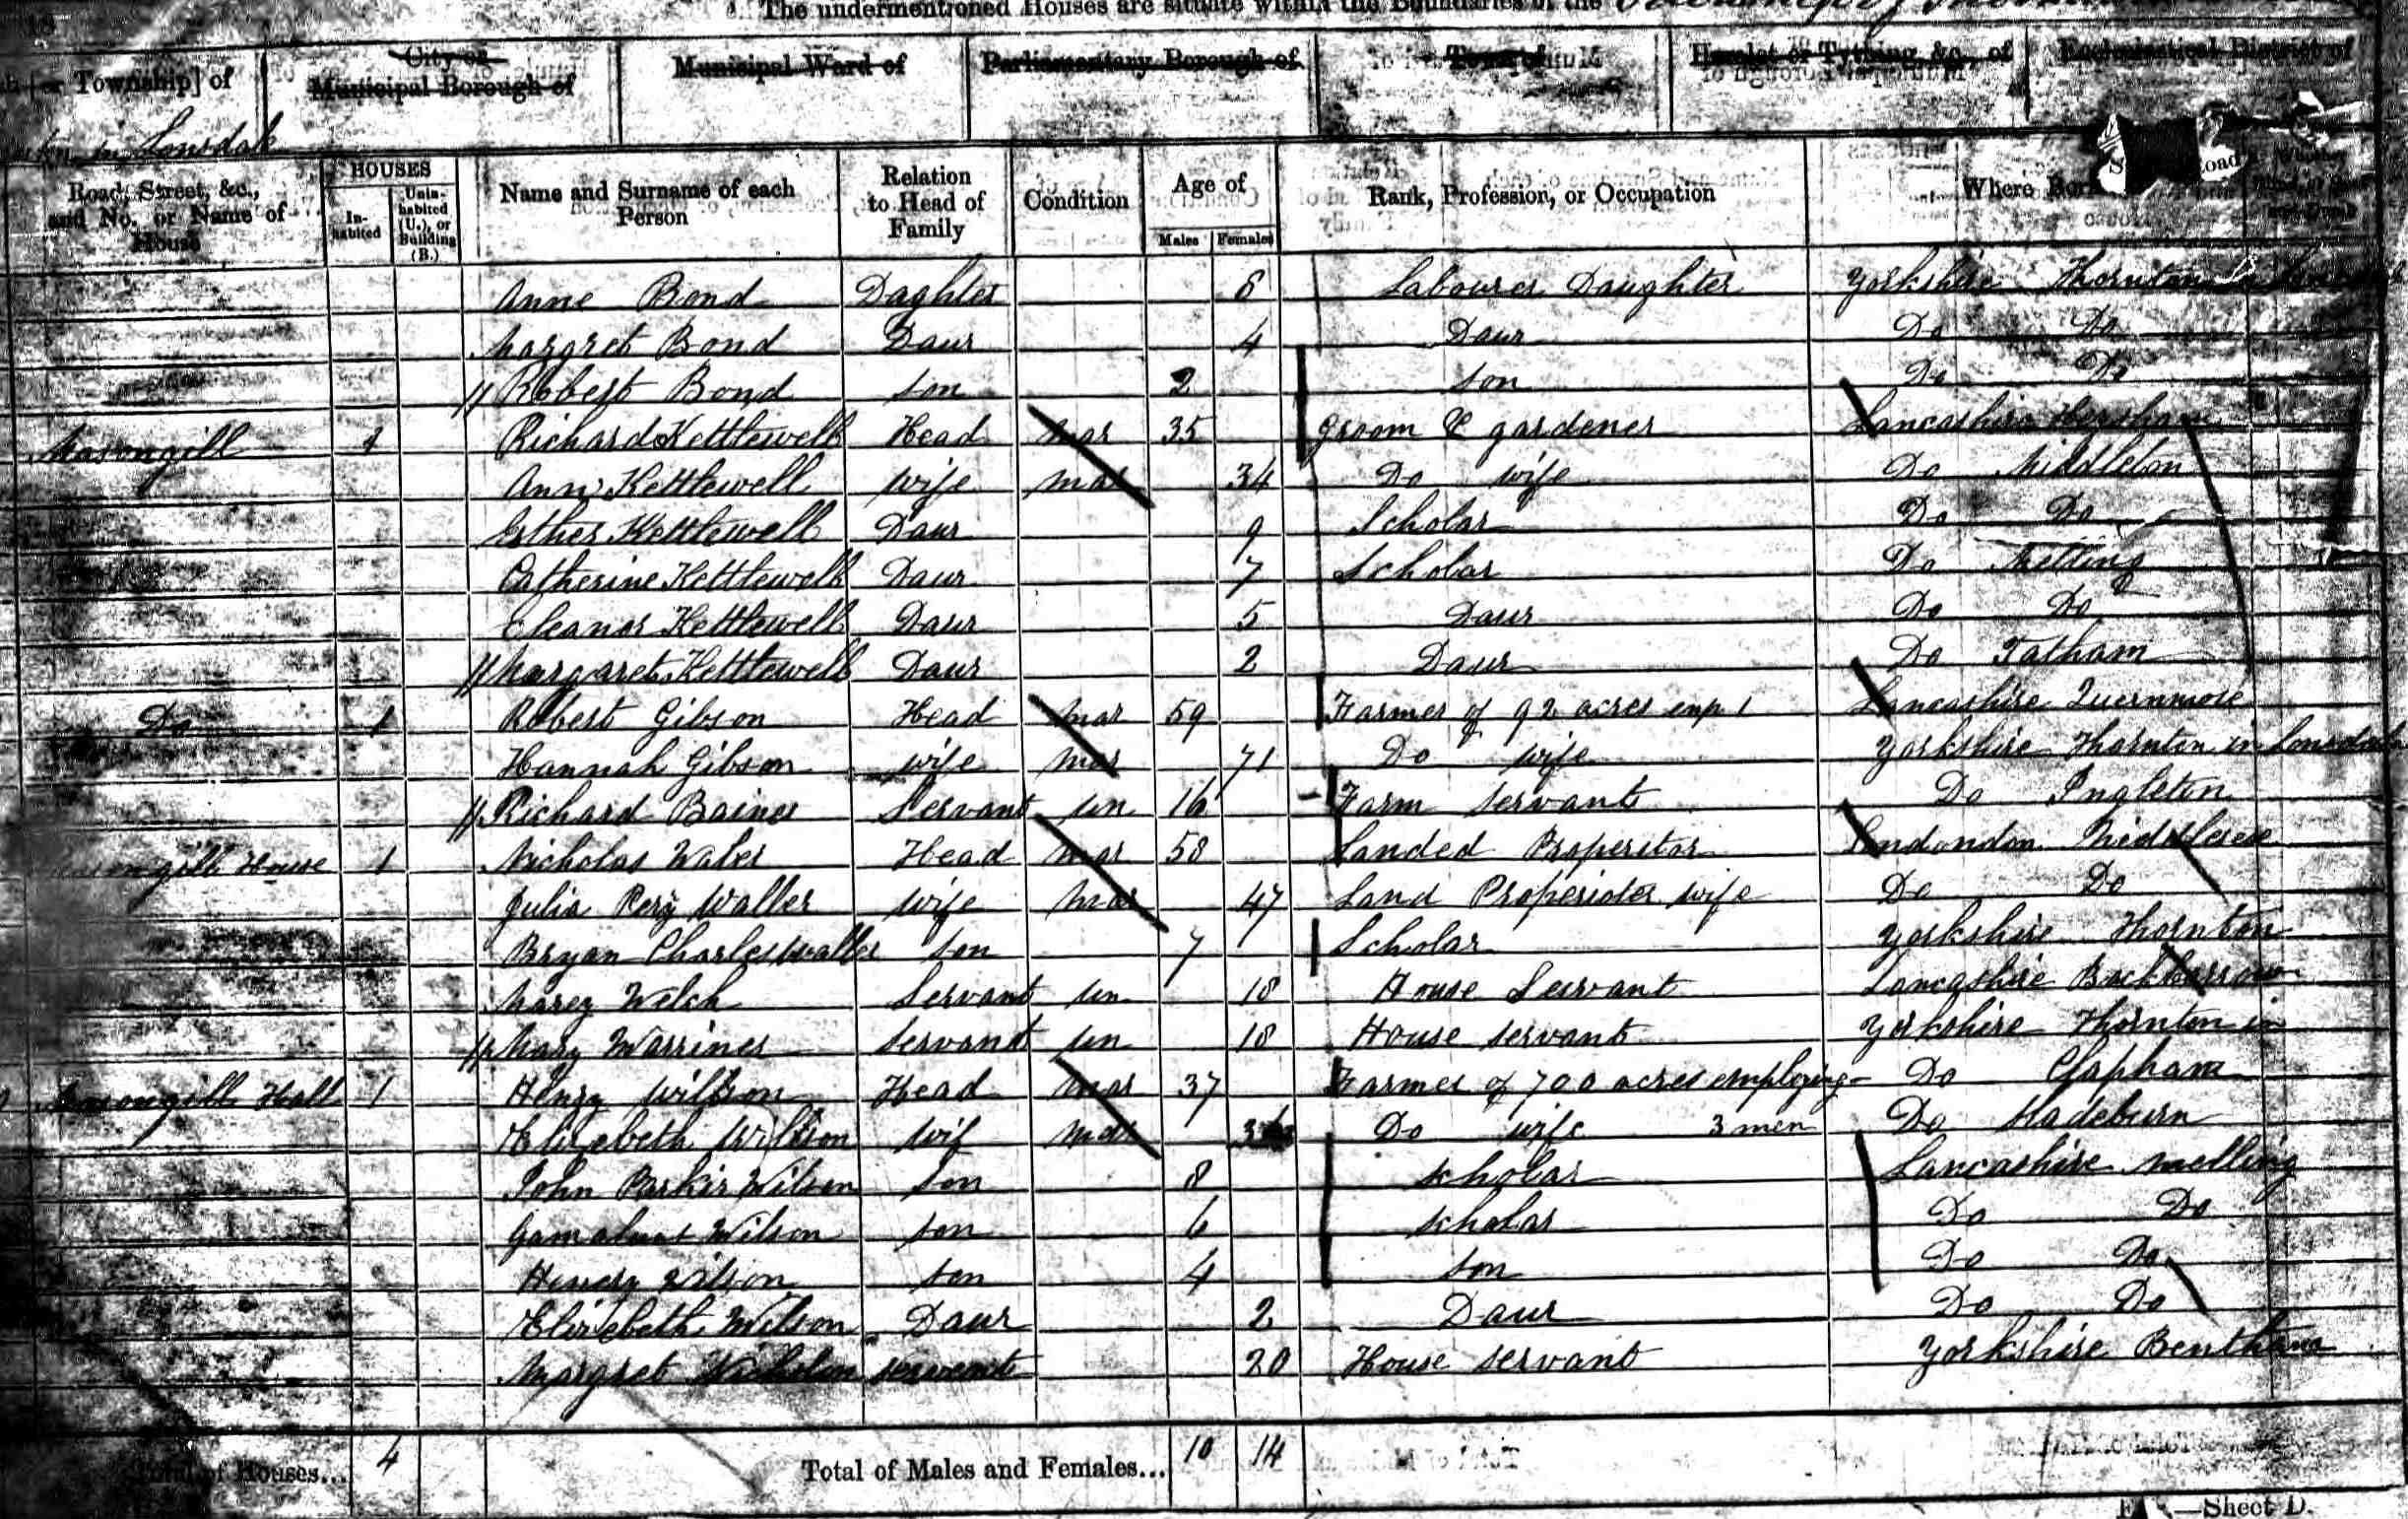 The undermentioned Houses are situate within the Boundaries of the
or Township] of
City or Municipal Borough of
Municipal Ward of
Parliamentary Borough of
Town of
Hamlet or Tything, &c., of
Ecclesiastical District of
in Lonsdale
Road, Street, &c., and No. or Name of House
HOUSES
In-habited
Unin-habited (U.), or Building (B.)
Name and Surname of each Person
Relation to Head of Family
Condition
Age of
Males Females
Rank, Profession, or Occupation
Where Born
Whether
Anne Bond Daghter 8 Labourer Daughter Yorkshire Thornton
Margret Bond Daur 4 Daur Do Do
Robert Bond son 2 son Do Do
Masongill 1 Richard Kettlewell Head mar 35 Groom & gardener Lancashire
Ann Kettlewell wife mar 34 Do wife Do Middleton
Esther Kettlewell Daur 9 Scholar Do Do
Catherine Kettlewell Daur 7 Scholar Do Melling
Eleanor Kettlewell Daur 5 Daur Do Do
Margaret Kettlewell Daur 2 Daur Do Tatham
Do 1 Robert Gibson Head mar 59 Farmer of 92 acres emp 1 Lancashire Quernmore
Hannah Gibson wife mar 71 Do wife Yorkshire Thornton in Lonsdale
Richard Baines Servant un 16 Farm servant Do Ingleton
Masongill House 1 Nicholas Waler Head mar 58 Landed Properitor Londondon
Julia Waller wife mar 47 Land Properioter wife Do Do
Bryan Charles Waller son 7 Scholar Yorkshire Thornton
Marey Welch Servant un 18 House Servant Lancashire Backbarrow
Mary Marriner servant un 18 House servant Yorkshire Thornton in
Masongill Hall 1 Henry Willson Head mar 37 Farmer of 700 acres employing Do Clapham
Elizebeth Willson wif mar Do wife 3 men Do Sladeburn
John Parkir Wilson son 8 scholar Lancashire Melling
Wilson son 6 scholar Do Do
Henery Wilson son 4 son Do Do
Elizebeth Wilson Daur 2 Daur Do Do
Margret servant 20 House servant Yorkshire Bentham
Total of Houses... 4
Total of Males and Females... 10 14
—Sheet D.